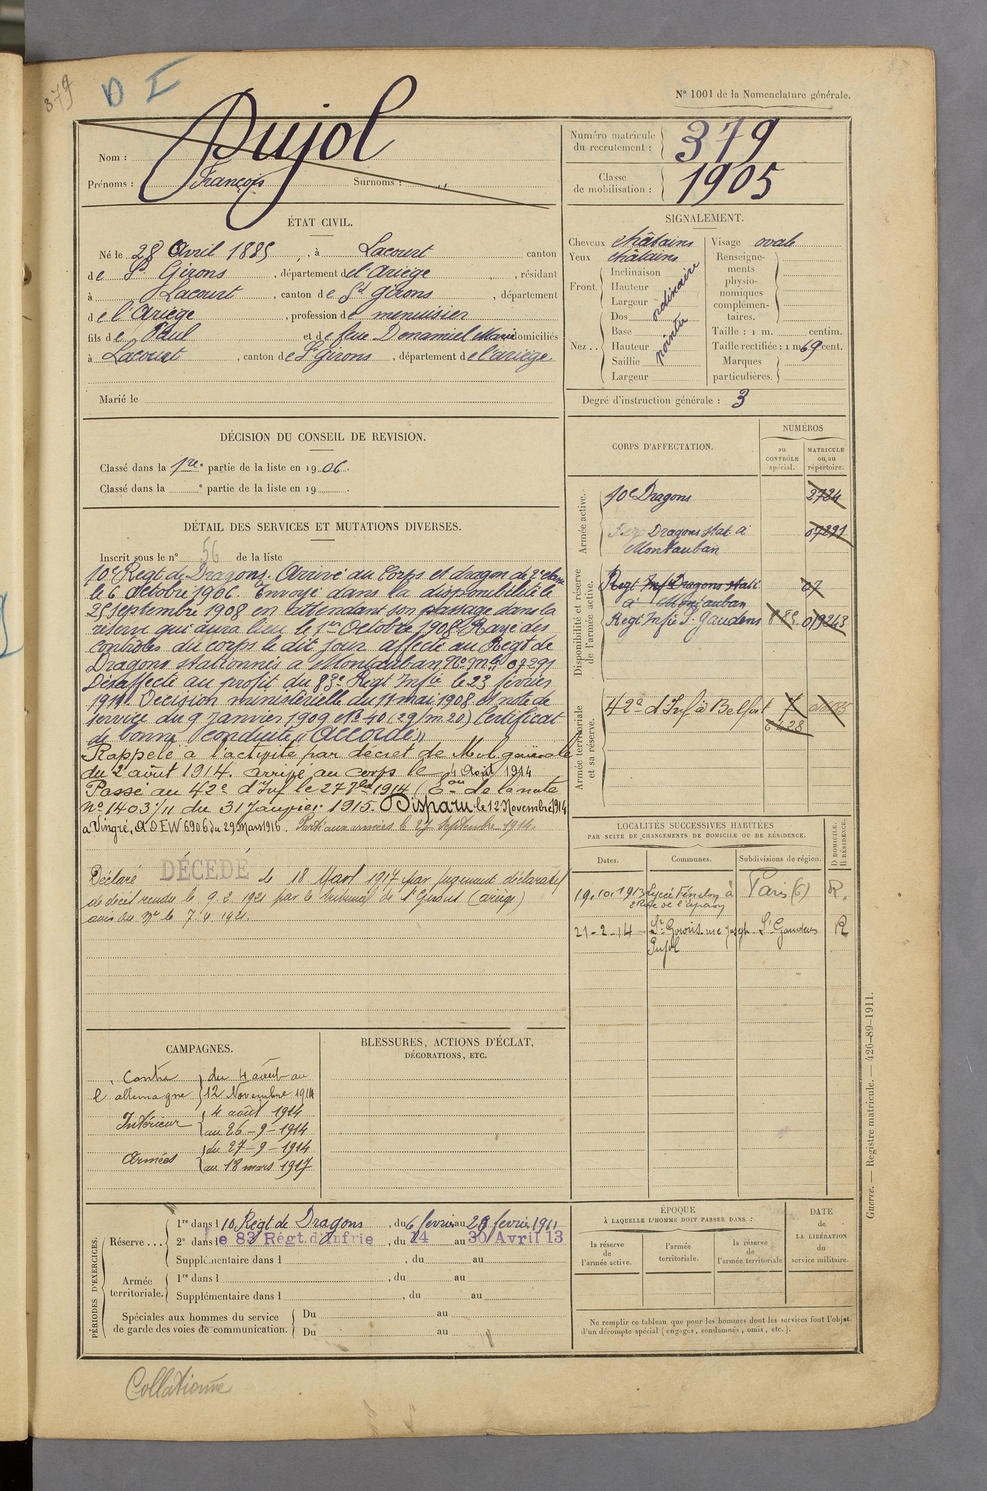 379
D I
N° 1001 de la Nomenclature générale.
Nom : Pujol
Prénoms : François Surnoms : "
Numéro matricule du recrutement : 379
Classe de mobilisation : 1905
ÉTAT CIVIL.
Né le 28 Avril 1885, à Lacourt canton
de St Girons, département de l'Ariège, résidant
à Lacourt, canton de St Girons, département
de l'Ariège, profession de menuisier
fils de Paul et de feue Domamiel Marie domiciliés
à Lacourt, canton de St Girons, département de l'ariège
Marié le
SIGNALEMENT.
Cheveux châtains
Yeux châtains
Front. Inclinaison
Hauteur
Largeur
ordinaire
Nez.. Dos
Base
Hauteur
Saillie
Largeur
pointu
Visage ovale
Renseignements physionomiques complémentaires.
Taille : 1 m. centim.
Taille rectifiée : 1 m 69 cent.
Marques particulières.
Degré d'instruction générale : 3
DÉCISION DU CONSEIL DE REVISION.
Classé dans la 1re partie de la liste en 1906.
Classé dans la e partie de la liste en 19 .
DÉTAIL DES SERVICES ET MUTATIONS DIVERSES.
Inscrit sous le n° 56 de la liste
10e Régt de Dragons. Arrivé au Corps et dragon de 2e classe
le 6 Octobre 1906. Envoyé dans la disponibilité le
25 Septembre 1908 en attendant son passage dans la
réserve qui aura lieu le 1er Octobre 1908. Rayé des
contrôles du corps le dit jour. affecté au Régt de
Dragons stationnés à Montauban, No Mle 07291
Désaffecté au profit du 83e Régt Infie le 23 février
1911. Décision ministérielle du 11 mai 1908 et note de
service du 9 Janvier 1909 No 40 (29/m.20) Certificat
de bonne conduite "Accordé"
Rappelé à l'activité par décret de Mob. générale
du 2 août 1914. arrivé au corps le 4 Août 1914
Passé au 42e d'Inf le 27 7bre 1914 ( de la note
No 1403/11 du 31 Janvier 1915. Disparu le 12 Novembre 1914
a Vingré, A.D EW 6906 du 29 Mars 1916. Parti aux armées le 27 Septembre 1914.
Déclaré DÉCÉDÉ le 18 Mars 1917 par jugement déclaratif
de décès rendu le 9.2.1921 par le tribunal de St Girons (ariège)
avis du le 7.4.1921.
CORPS D'AFFECTATION.
NUMÉROS
au CONTRÔLE spécial.
MATRICULE ou au répertoire.
Armée active.
10e Dragons 2724
Dragons stat. à Montauban 07291
Disponibilité et réserve de l'armée active.
Regt Inf Dragons stat. à Montauban 07
Regt Infie St Gaudens 883 019243
Armée territoriale et sa réserve.
42e d'Inf à Belfort
LOCALITÉS SUCCESSIVES HABITÉES
PAR SUITE DE CHANGEMENTS DE DOMICILE OU DE RÉSIDENCE.
Dates. Communes. Subdivisions de région. D DOMICILE. R RÉSIDENCE.
19.10.1913 Lycée Fénelon à 2 Rue de l'Eperon Paris (6) R.
21-2-14 St Girons rue Joseph Pujol St Gaudens R
CAMPAGNES.
Contre l'allemagne du 4 août au 12 Novembre 1914
Intérieur 4 août 1914 au 26-9-1914
Armées du 27-9-1914 au 18 mars 1917
BLESSURES, ACTIONS D'ÉCLAT,
DÉCORATIONS, ETC.
PÉRIODES D'EXERCICES.
Réserve...
1re dans l 10 Régt de Dragons, du 6 fevrier au 28 fevrier 1911
2e dans le 83 Régt. d'Infrie, du 14 au 30 Avril 13
Supplémentaire dans l , du au
Armée territoriale.
1re dans l , du au
Supplémentaire dans l , du au
Spéciales aux hommes du service de garde des voies de communication. Du au
Du au
ÉPOQUE
À LAQUELLE L'HOMME DOIT PASSER DANS :
la réserve de l'armée active.
l'armée territoriale.
la réserve de l'armée territoriale
DATE de LA LIBÉRATION du service militaire.
Ne remplir ce tableau que pour les hommes dont les services font l'objet
d'un décompte spécial (engagés, condamnés, omis, etc.).
Guerre. — Registre matricule. — 426-89-1911.
Collationné